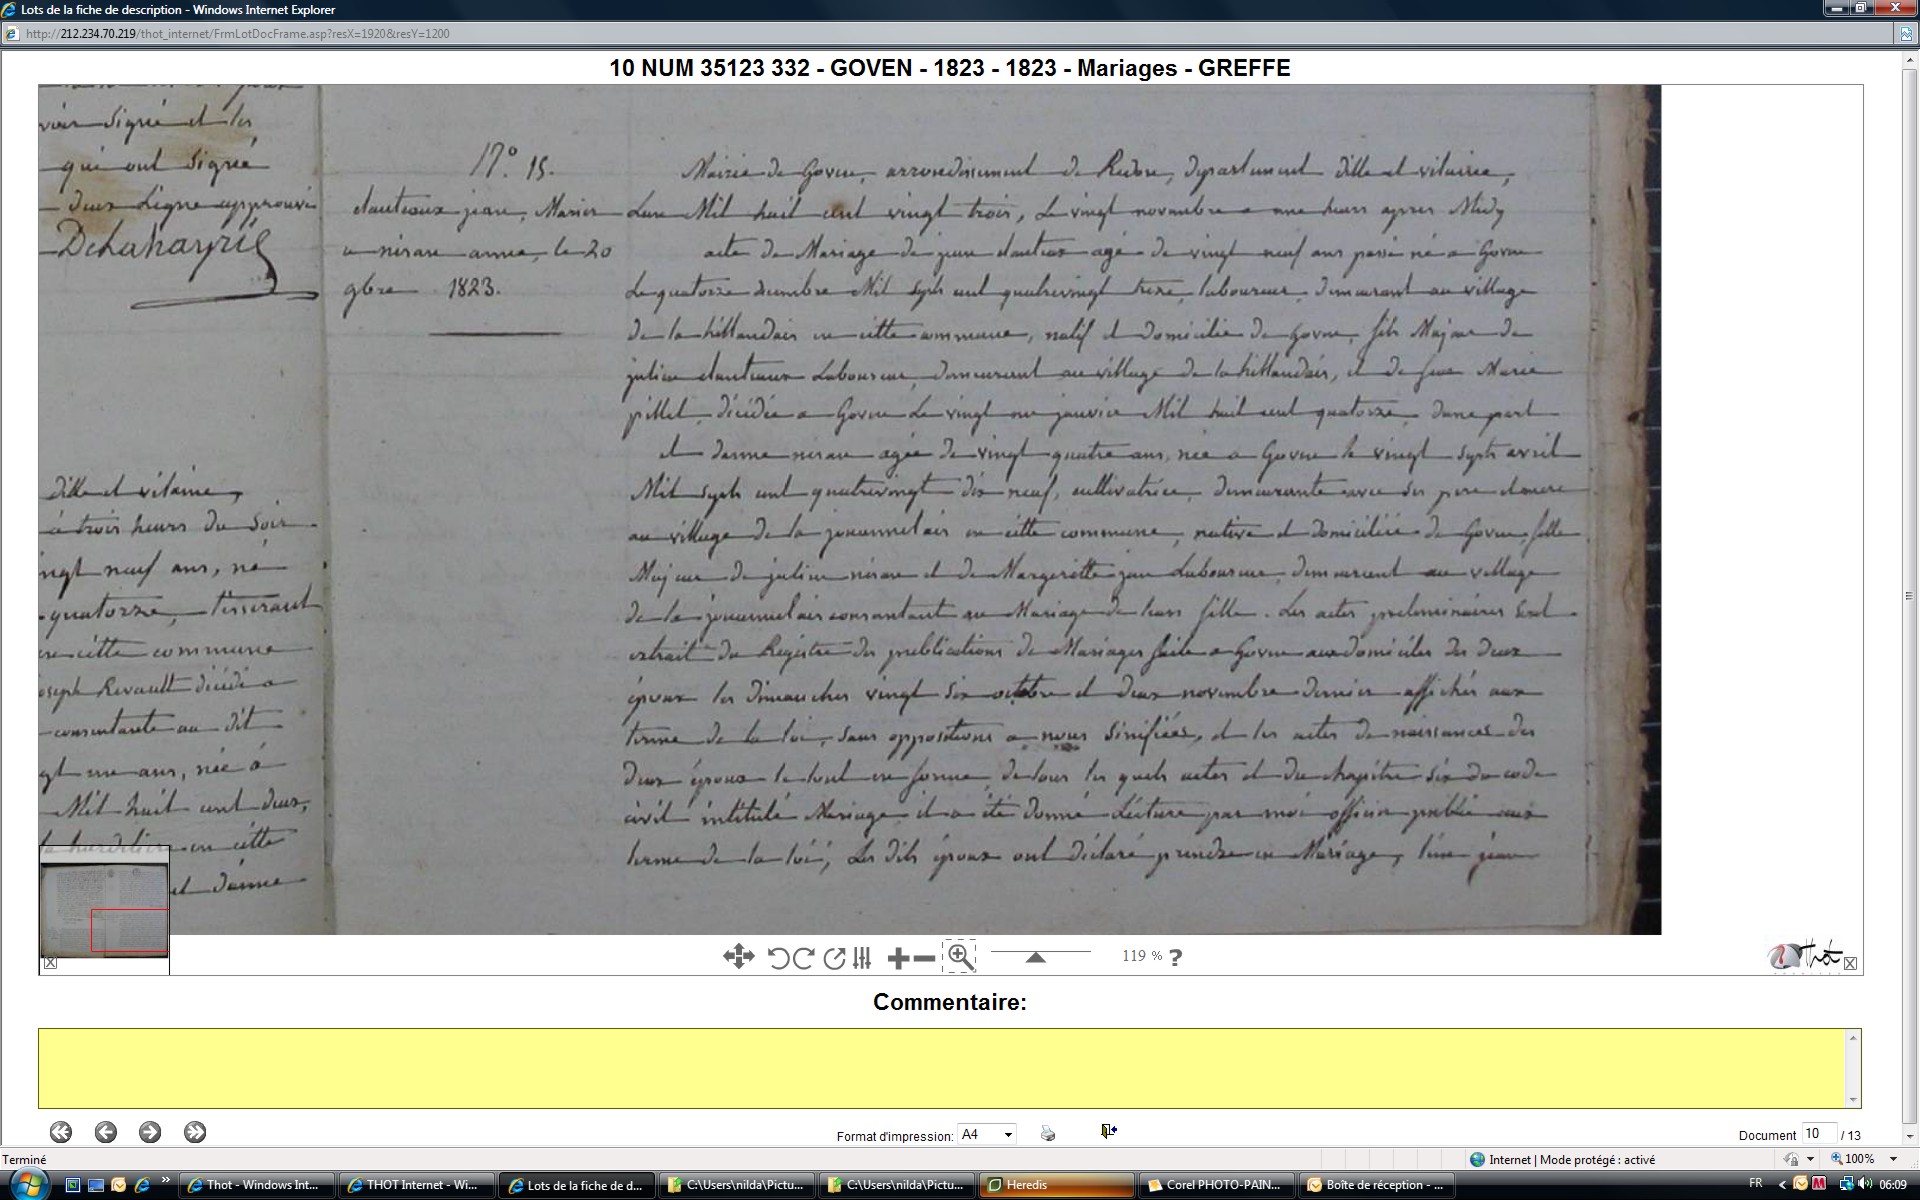 Lots de la fiche de description - Windows Internet Explorer
http://212.234.70.219/thot_internet/FrmLotDocFrame.asp?resX=1920&resY=1200
10 NUM 35123 332 - GOVEN - 1823 - 1823 - Mariages - GREFFE
voir signé et les
qui ont signé
deux Ligne approuvé
Delahayrie
dille et vilaine,
à trois heures du soir
ingt neuf ans, né
quatorze, tisserand
en cette commune
oseph Revault décédé a
consentante au dit
gt un ans, née à
Mil huit cent deux,
en cette
et danne
N.° 15.
dauteaux jean, Marier
a nirau anne, le 20
9bre 1823.
Mairie de Goven, arrondissement de Redon, departement dille et vilaine,
Lan Mil huit cent vingt trois, Le vingt novembre a une heure apres Midy
acte de Mariage de jean dauteux agé de vingt neuf ans passé né a Goven
Le quatorze decembre Mil sept cent quatrevingt treze, laboureur, demeurant au village
de la hillandais en cette commune, natif et domicilié de Goven, fils Majeur de
julien dauteaux Laboureur, demeurant au village de la hillandais, et de feue Marie
pillet, décédée a Goven Le vingt un janvier Mil huit cent quatorze, dune part
et danne nirau agée de vingt quatre ans, née a Goven le vingt sept avril
Mil sept cent quatrevingt dix neuf, cultivatrice, demeurante avec ses pere et mere
au village de la jouannelais en cette commune, native et domiciliée de Goven, fille
Majeure de julien nirau et de Margeritte jan Laboureur, demeurant au village
de la jouannelais consentant au Mariage de leur fille. Les actes preliminaires sont
extrait du Registre des publications de Mariages faite a Goven aux domiciles des deux
époux les dimanches vingt six octobre et deux novembre dernier affichés aux
terme de la loi, sans oppositions a nous sinifiées, et les actes de naissances des
deux époux le tout en forme, de tous les quels actes et du chapitre six du code
civil intitulé Mariage, il a été donné Lecture par moi officier public aux
terme de la loi, Les dits époux ont déclaré prendre en Mariage, lun jean
119 % ?
Thot
Commentaire:
Format d'impression: A4
Document 10 / 13
Terminé
Internet | Mode protégé : activé
100%
Thot - Windows Int...
THOT Internet - Wi...
Lots de la fiche de d...
C:\Users\nilda\Pictu...
C:\Users\nilda\Pictu...
Heredis
Corel PHOTO-PAIN...
Boîte de réception - ...
FR
06:09